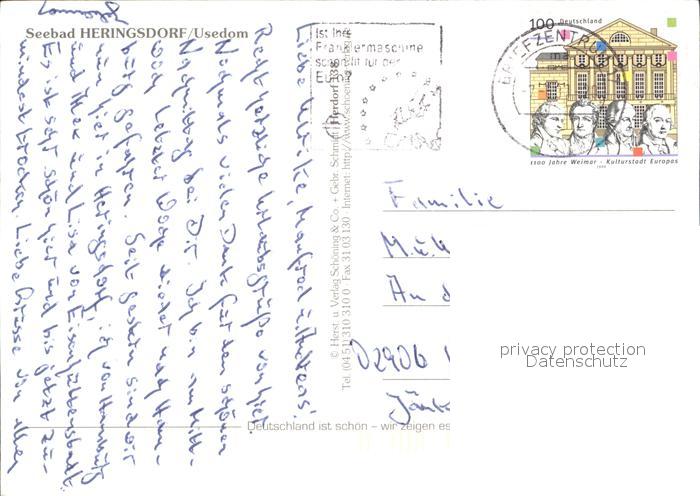 Seebad HERINGSDORF/Usedom
Ist Ihre
Frankiermaschine
schon fit für den
Euro?
BRIEFZENTRUM
100 Deutschland
1100 Jahre Weimar - Kulturstadt Europas
1999
Liebe Ulrike, Manfred u.
Recht herzliche Urlaubsgrüße von hier.
Nochmals vielen Dank für den schönen
Nachmittag bei Dir. Ich bin am Mitt-
woch letzter Woche wieder nach Ham-
burg gefahren. Seit gestern sind wir
nun hier in Heringsdorf, ich von Hamburg
und und Lisa von Eisenhüttenstadt.
Es ist sehr schön hier und bis jetzt zu-
mindest trocken. Liebe Grüsse von
© Herst. u. Verlag Schöning & Co. + Gebr. Schmidt
Tel. (0451) 310 310 0 · Fax 31 03 130 · Internet: http://www.schoening
Familie
M. u.
An d
02906
Jänk
Deutschland ist schön – wir zeigen es
privacy protection
Datenschutz